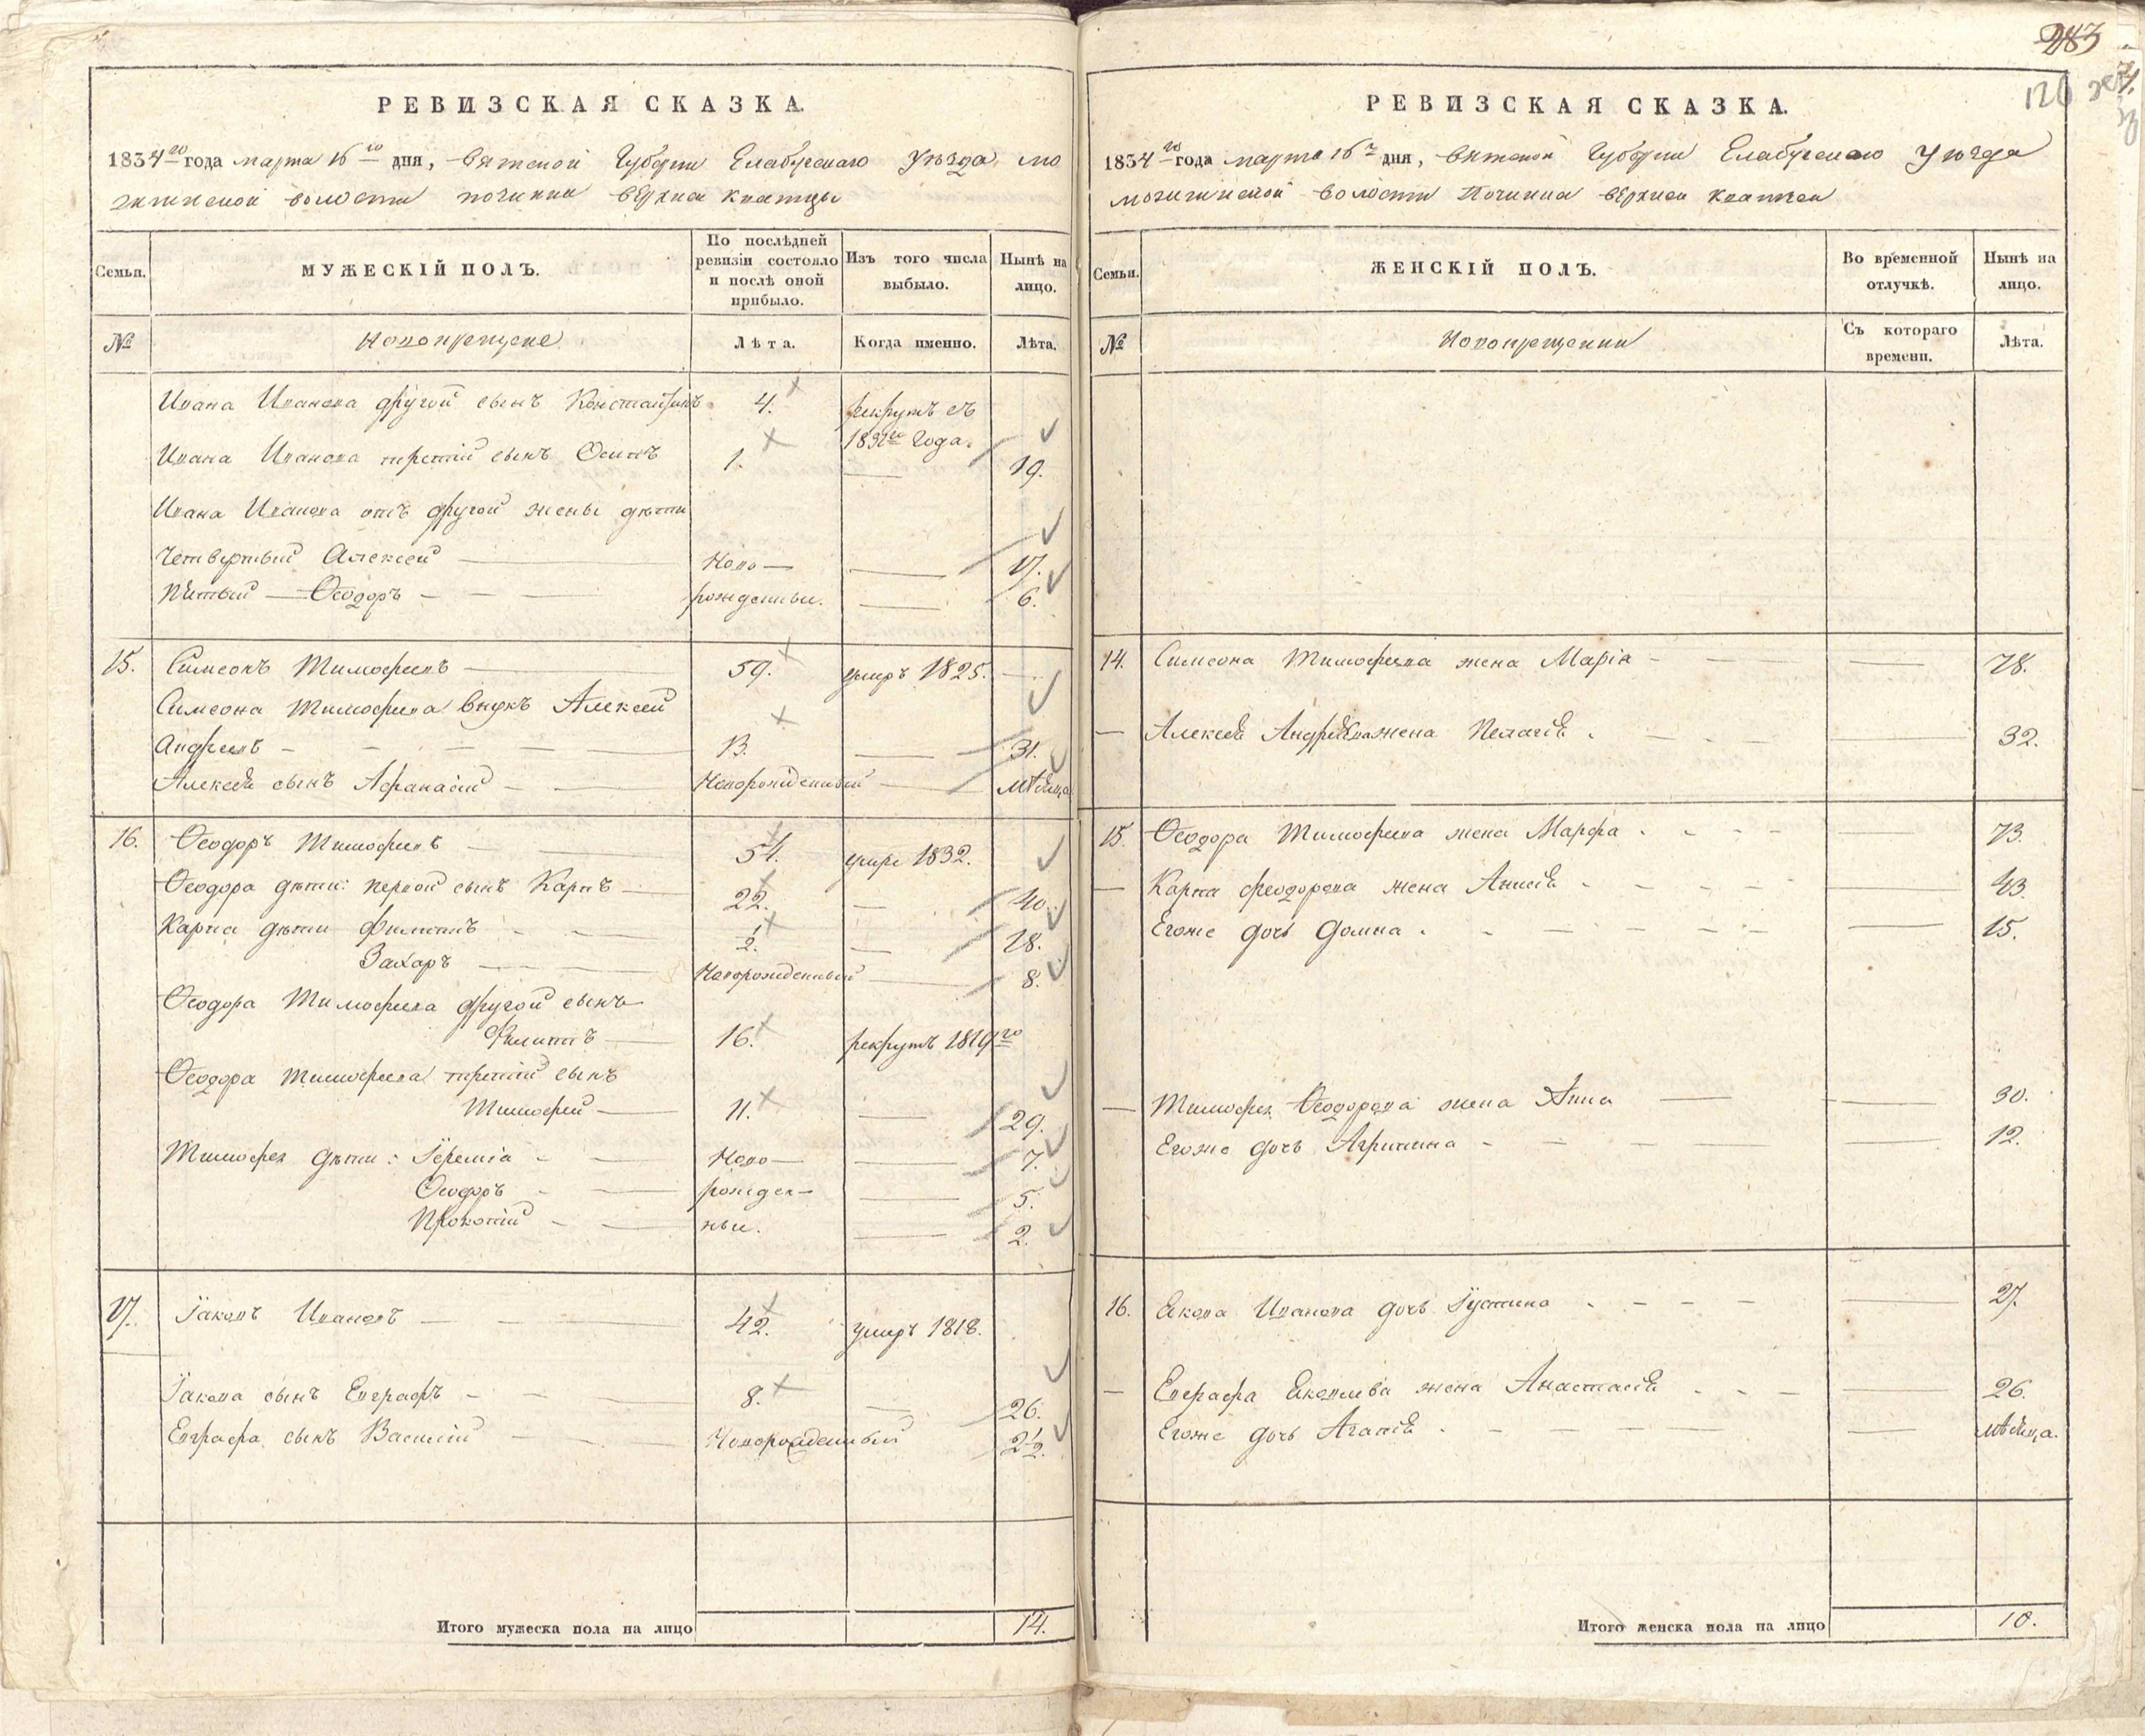 283
126
РЕВИЗСКАЯ СКАЗКА.
1834го года марта 16го дня, Вятской Губерни Елабугскаго Уѣзда мо
жгинской волости починки верхней кватцы
Семьи.
МУЖЕСКІЙ ПОЛЪ.
По послѣдней ревизіи состояло и послѣ оной прибыло.
Изъ того числа выбыло.
Нынѣ на лицо.
№
Лѣта.
Когда именно.
Лѣта.
Ивана Иванова другой сынъ Константинъ 4. рекрутъ съ
года.
Ивана Иванова третій сынъ Осипъ 1. 19.
Ивана Иванова отъ другой жены дѣти
Четвертый Алексей Ново— 17.
Пятый Ѳеодоръ рожденные. 6.
15. Симеонъ Тимофеевъ 59. умръ 1825.
Симеона Тимофеева внукъ Алексей
Андреевъ 13. 31.
Алексея сынъ Афанасій Новорожденный мѣсяца
16. Ѳеодоръ Тимофеевъ 54. умре 1832.
Ѳеодора дѣти: первой сынъ Карпъ 22. 40.
Карпа дѣти Филипъ ½. 18.
Захаръ Новорожденный 8.
Ѳеодора Тимофеева другой сынъ
Филиппъ 16. рекрутъ 1819го
Ѳеодора Тимофеева третій сынъ
Тимофей 11. 29.
Тимофея дѣти: Іеремія Ново— 7.
Ѳеодоръ рожден— 5.
Прокопій ные. 2.
17. Іаковъ Ивановъ 42. умеръ 1818.
Іакова сынъ Евграфъ 8. 26.
Евграфа сынъ Василій Новорожденный 2½.
Итого мужеска пола на лицо 14.
РЕВИЗСКАЯ СКАЗКА.
1834го года марта 16 дня, Вятской Губерни Елабугскаго Уѣзда
Починка верхней
Семьи.
ЖЕНСКІЙ ПОЛЪ.
Во временной отлучкѣ.
Нынѣ на лицо.
№
Новокрещенни
Съ котораго времени.
Лѣта.
14. Симеона Тимофеева жена Марія 78.
Алексея Андреева жена Пелагея 32.
15. Ѳеодора Тимофеева жена Марфа 73.
Карпа феодорова жена Анисія 43.
Егоже дочь Домна 15.
Тимофея Ѳеодорова жена Анна 30.
Егоже дочь Агрипина 12.
16. Якова Иванова дочь Іустина 27.
Евграфа Яковлева жена Анастасія 26.
Егоже дочь Агапія мѣсяца.
Итого женска пола на лицо 10.